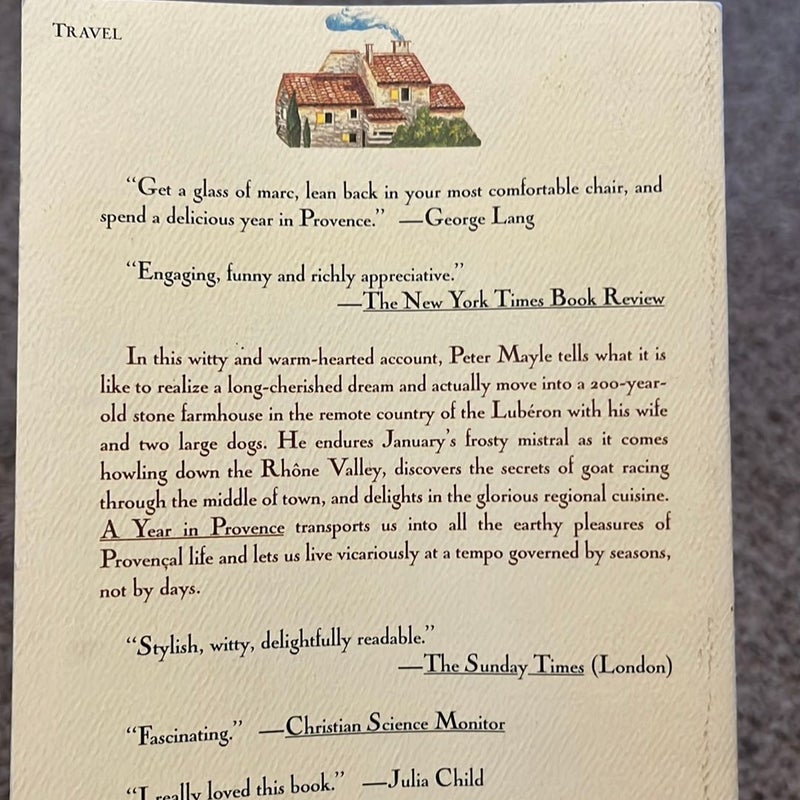 TRAVEL
“Get a glass of marc, lean back in your most comfortable chair, and
spend a delicious year in Provence.” —George Lang
“Engaging, funny and richly appreciative.”
—The New York Times Book Review
In this witty and warm-hearted account, Peter Mayle tells what it is
like to realize a long-cherished dream and actually move into a 200-year-
old stone farmhouse in the remote country of the Lubéron with his wife
and two large dogs. He endures January’s frosty mistral as it comes
howling down the Rhône Valley, discovers the secrets of goat racing
through the middle of town, and delights in the glorious regional cuisine.
A Year in Provence transports us into all the earthy pleasures of
Provençal life and lets us live vicariously at a tempo governed by seasons,
not by days.
“Stylish, witty, delightfully readable.”
—The Sunday Times (London)
“Fascinating.” —Christian Science Monitor
“I really loved this book.” —Julia Child